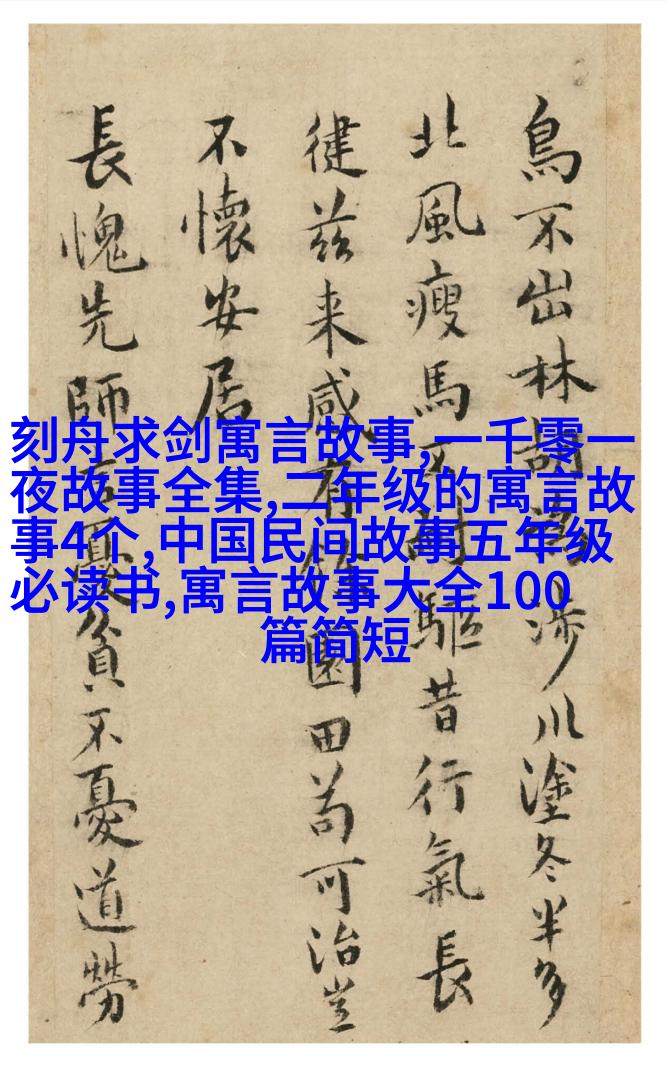 鳥不出林涉川塗冬半多
北風瘦馬驅昔行氣長
健兹来有園田苟可治豈
不懷安居
長愧先師憂貧不憂道勞
刻舟求剑寓言故事,一千零一
夜故事全集,二年级的寓言故
事4个,中国民间故事五年级
必读书,寓言故事大全100
篇简短